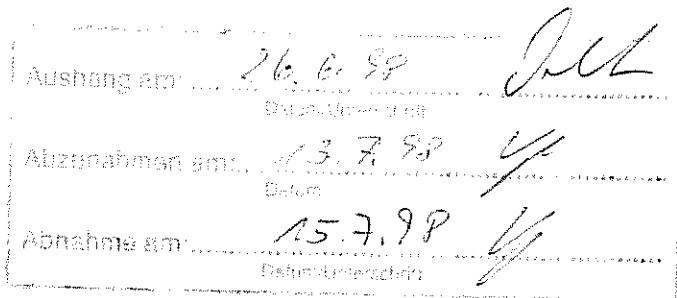 Aushang am: 26.6.98
Datum/Unterschrift
Abzunehmen am: 13.7.98
Datum
Abnahme am: 15.7.98
Datum/Unterschrift